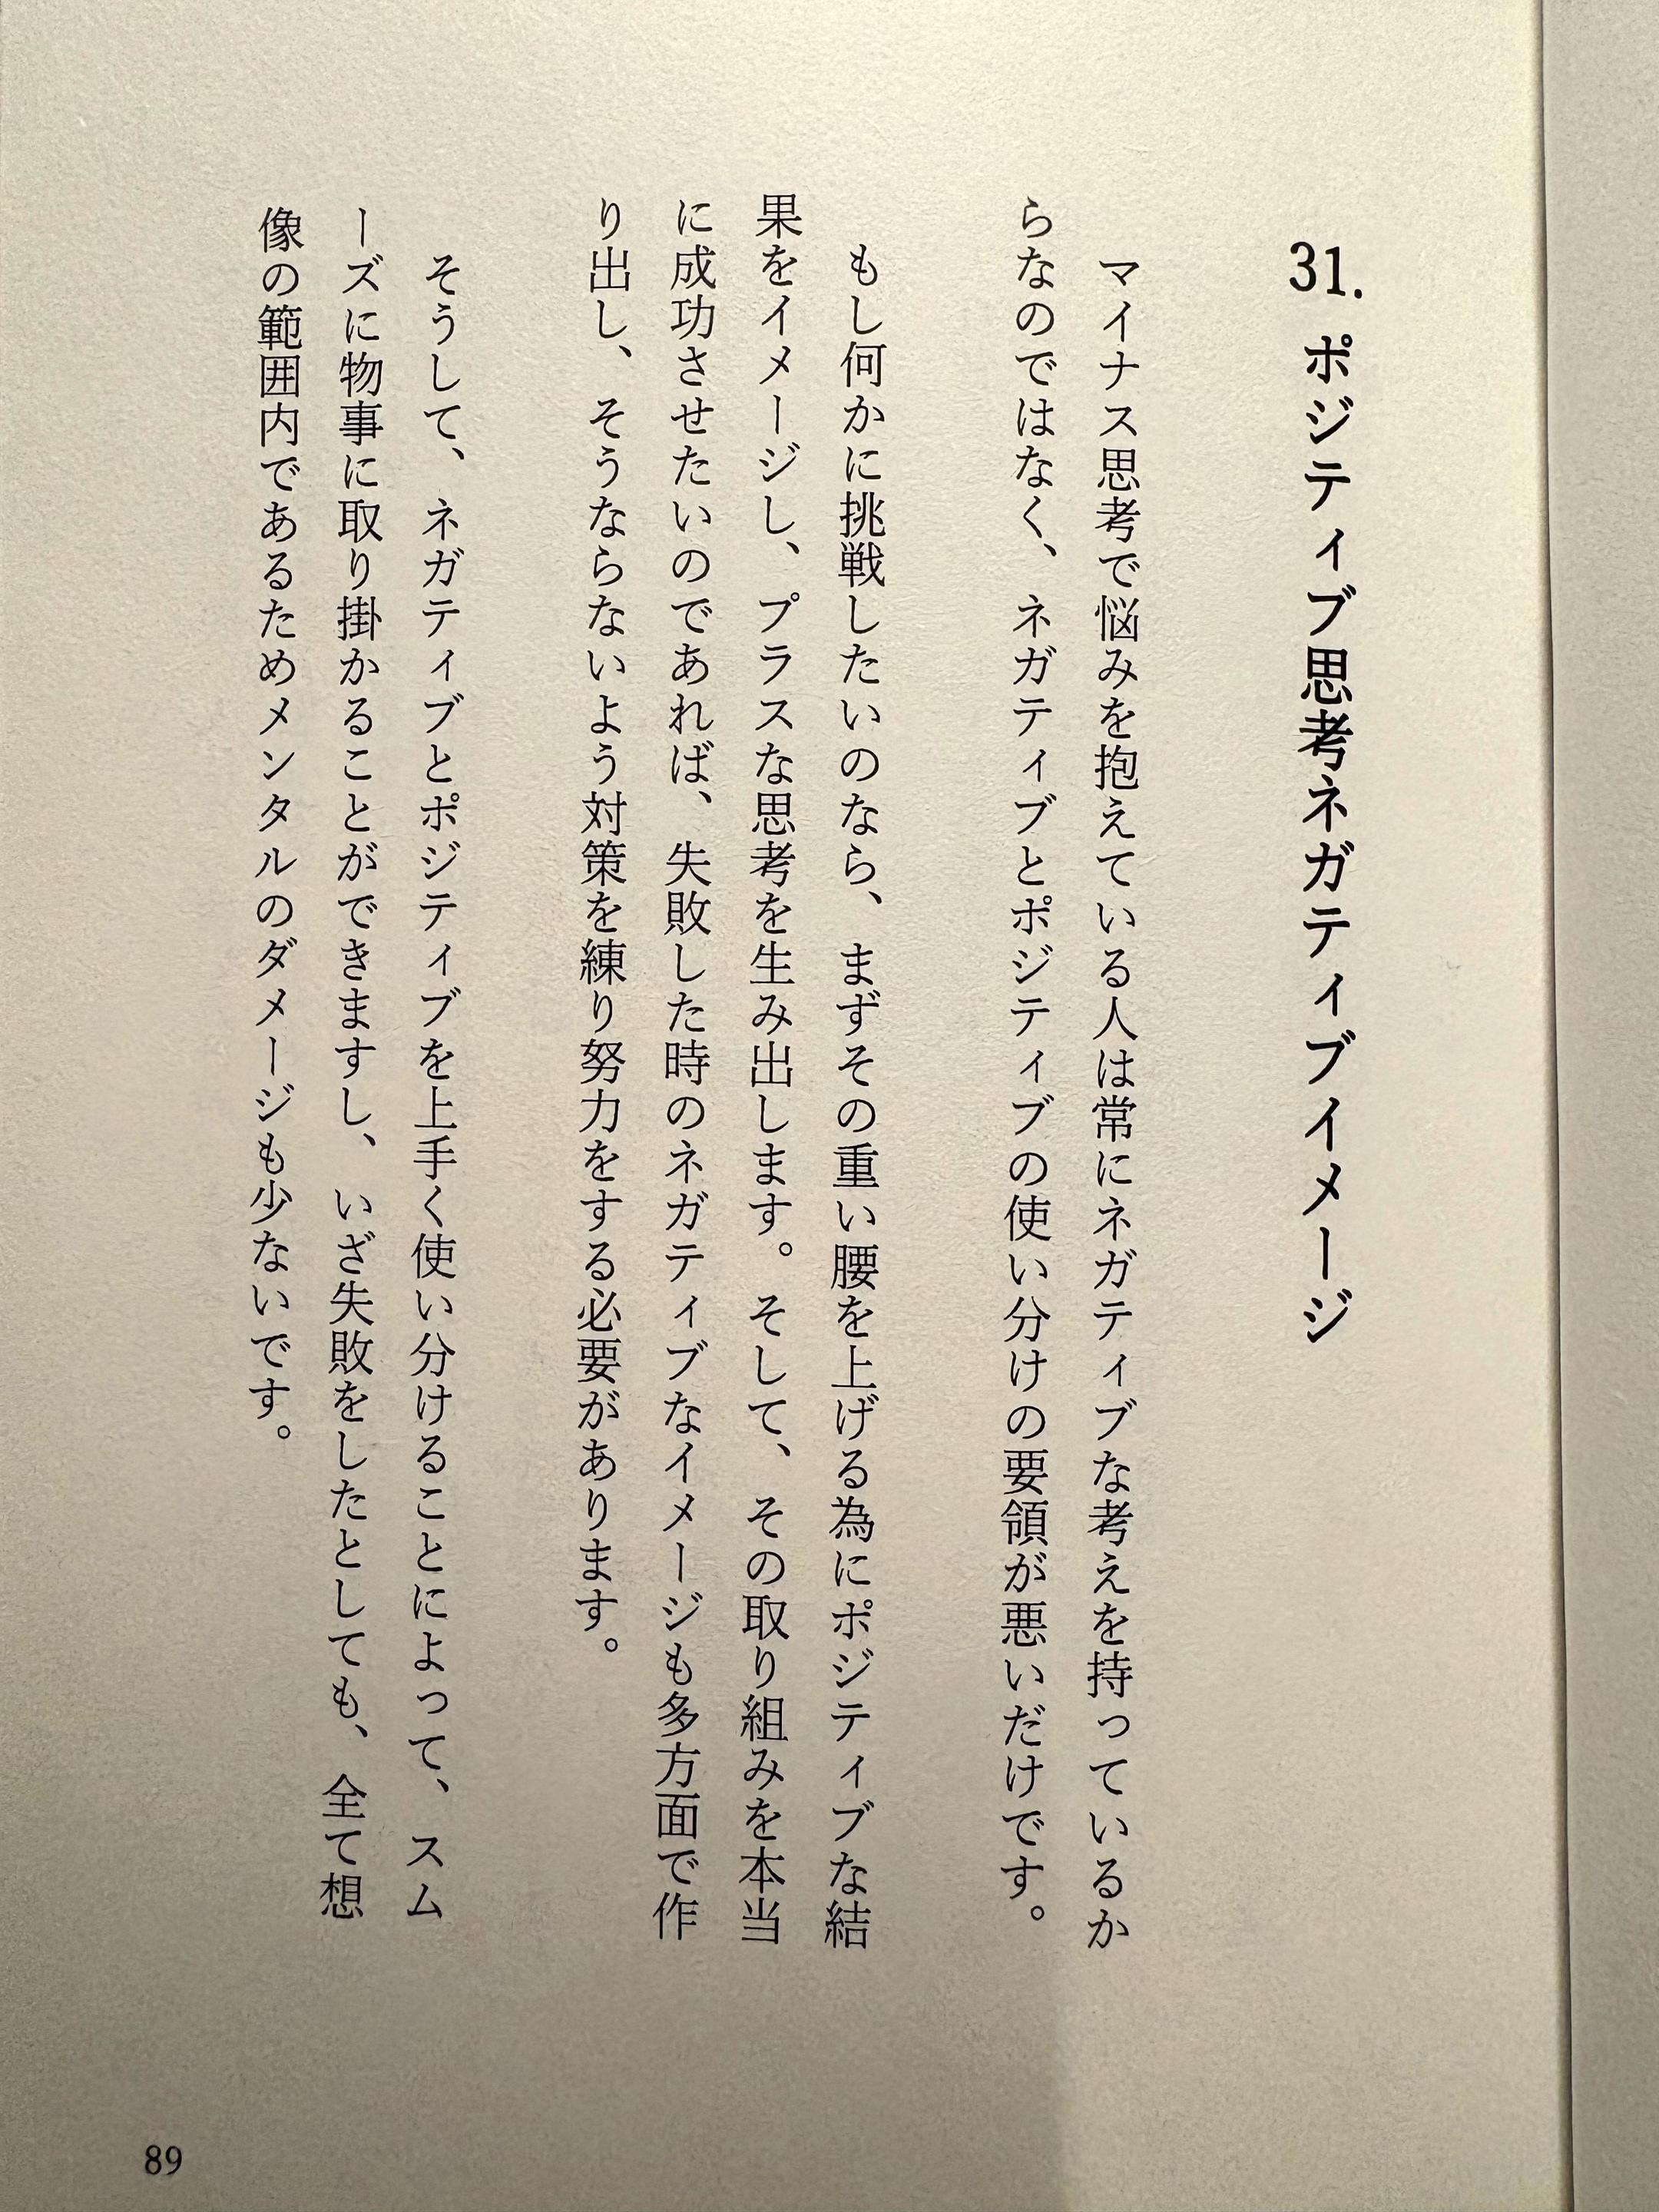 31. ポジティブ思考ネガティブイメージ
マイナス思考で悩みを抱えている人は常にネガティブな考えを持っているか
らなのではなく、ネガティブとポジティブの使い分けの要領が悪いだけです。
もし何かに挑戦したいのなら、まずその重い腰を上げる為にポジティブな結
果をイメージし、プラスな思考を生み出します。そして、その取り組みを本当
に成功させたいのであれば、失敗した時のネガティブなイメージも多方面で作
り出し、そうならないよう対策を練り努力をする必要があります。
そうして、ネガティブとポジティブを上手く使い分けることによって、スム
ーズに物事に取り掛かることができますし、いざ失敗をしたとしても、全て想
像の範囲内であるためメンタルのダメージも少ないです。
89